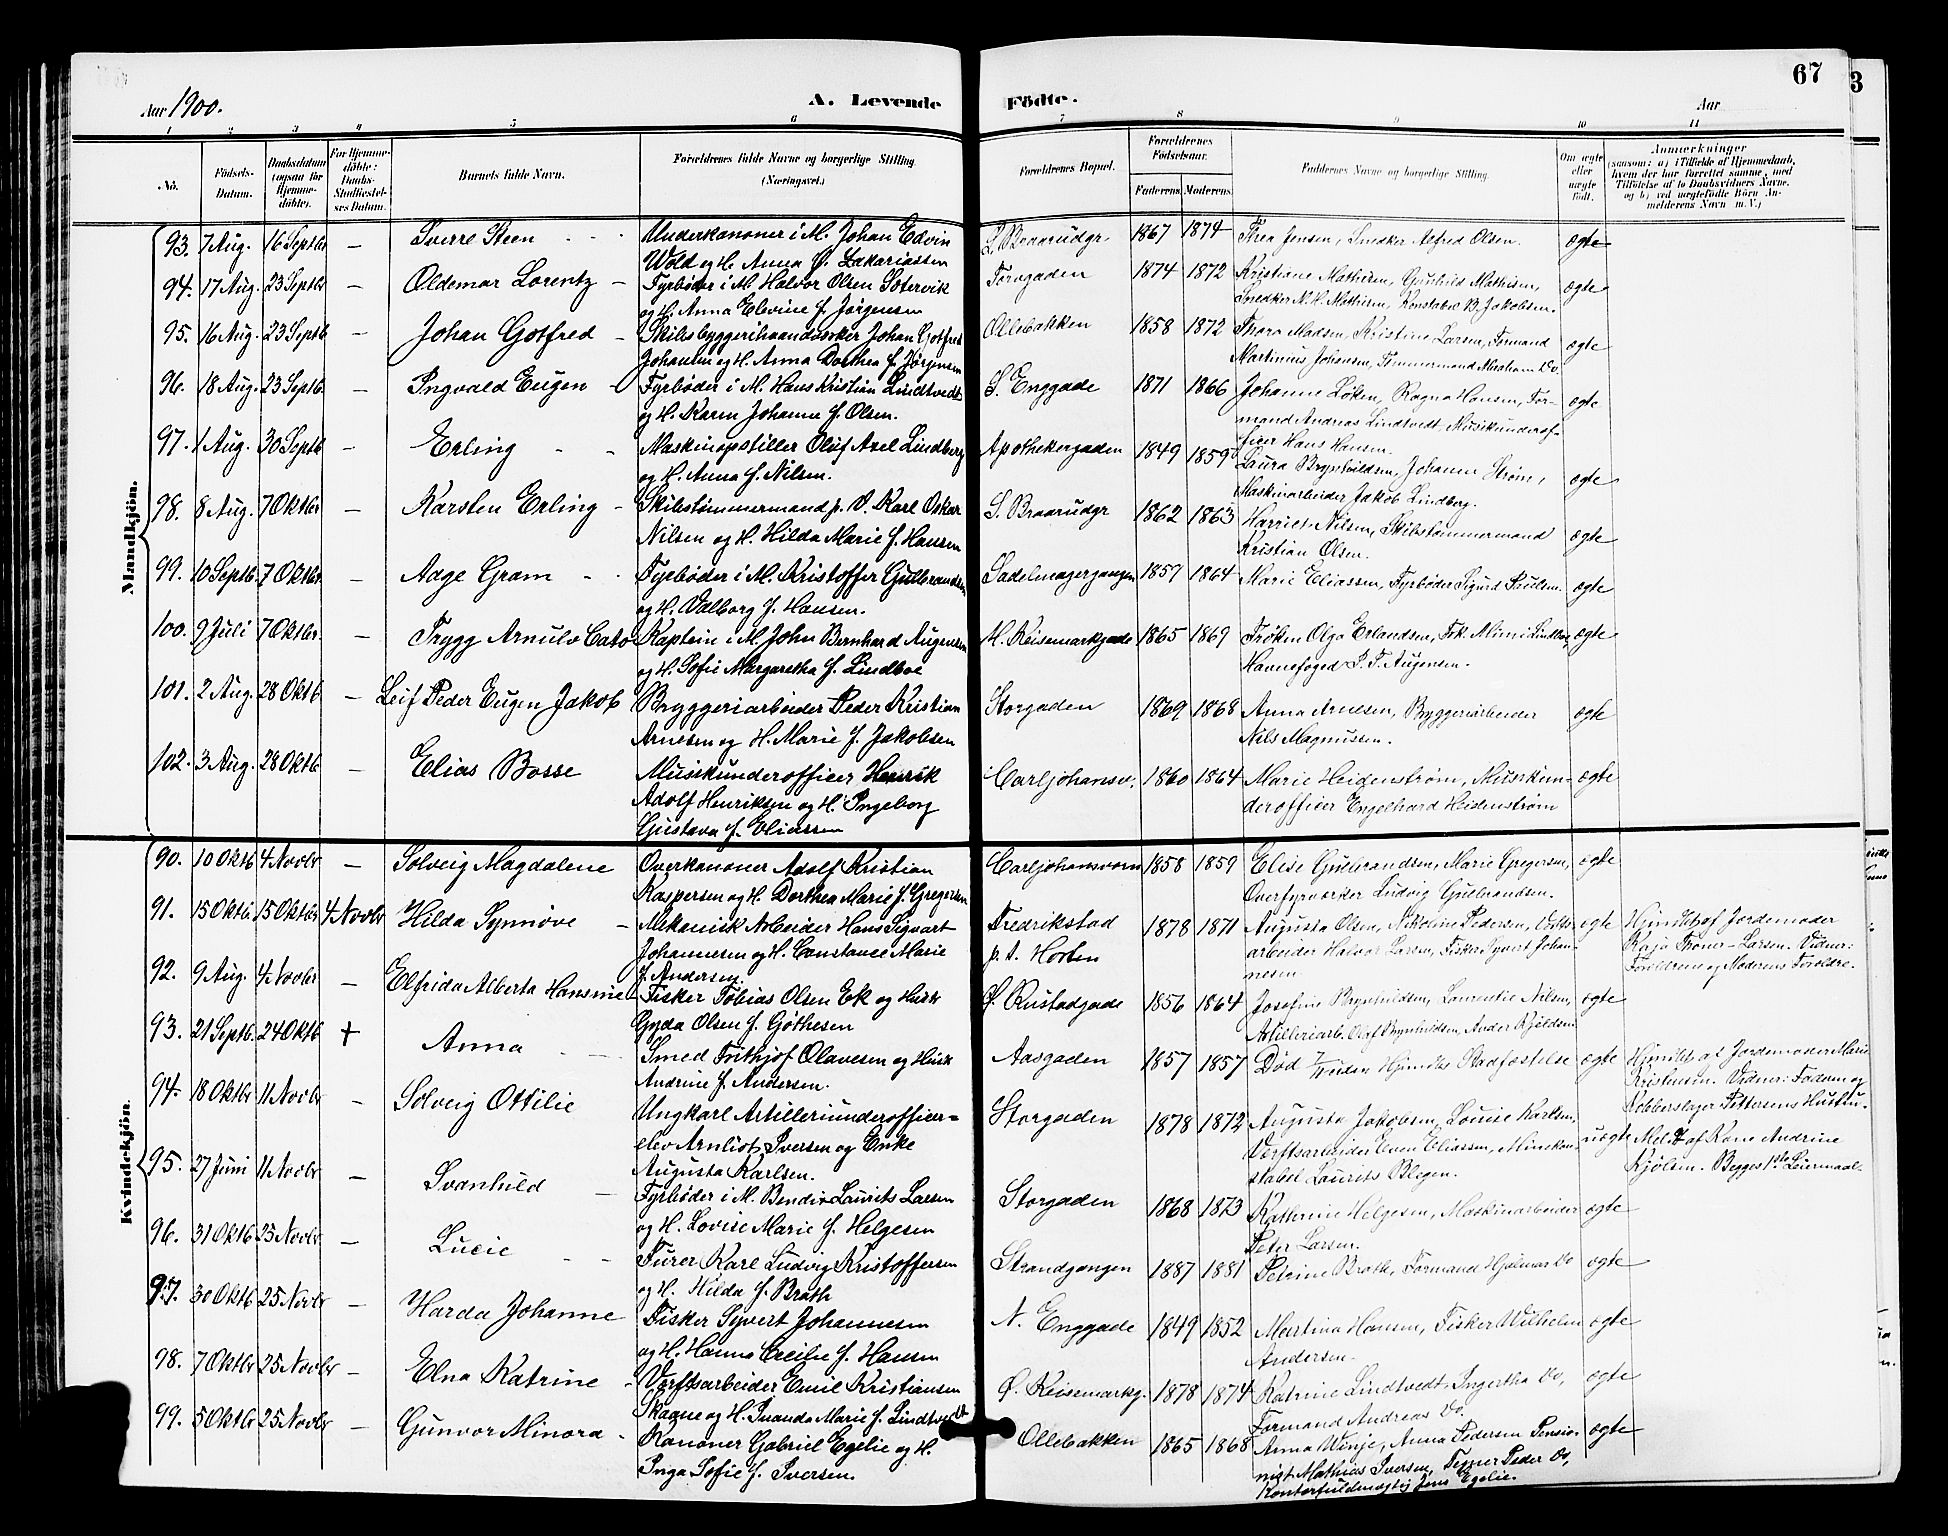 Aar 1900.
A. Levende
Födte.
Aar
67
3
1 2 3 4 5 6 7 8 9 10 11
No.
Födsels-Datum.
Daabsdatum (ogsaa for Hjemme-döbte).
For Hjemme-döbte: Daabs-Stadfæstel-ses Datum.
Barnets fulde Navn.
Forældrenes fulde Navne og borgerlige Stilling.
(Næringsvei.)
Forældrenes Bopæl.
Forældrenes Födselsaar.
Faderens. Moderens.
Faddernes Navne og borgerlige Stilling.
Om ægte eller uægte födt.
Anmerkninger
(saasom: a) i Tilfælde af Hjemmedaab, hvem der har forrettet samme, med Tilföielse af to Daabsvidners Navne. og b) ved uægtefödte Börn An-melderens Navn m. V.)
Mandkjön.
93. 7 Aug. 16 Septbr — Sverre Steen - - Underkanoner i M. Johan Edvin
Wold og H. Anna f. Zakariassen
S. Braarudgr 1867 1874 Thea Jensen, Snedker Alfred Olsen. ægte
94. 17 Aug. 23 Septbr — Oldemar Lorentz — Fyrböder i M. Halvor Olsen Sætervik
og H. Anna Elevine f. Jørgensen
Torvgaden 1874 1872 Kristiane Mathisen, Gunhild Mathisen,
Snedker N. H. Mathisen, Konstabel B. Jakobsen. ægte
95. 16 Aug. 23 Septb — Johan Gotfred — Skibsbyggerihaandverker Johan Gotfred
Johansen og H. Anna Dorthea f. Jørgensen
Ollebakken 1858 1872 Thora Madsen, Kristine Larsen, Formand
Martinius Johansen, Tømmermand Abraham Do. ægte
96. 18 Aug. 23 Septb. — Ingvald Eugen — Fyrböder i M. Hans Kristian Lindtvedt
og H. Karen Johanne f. Olsen.
S. Enggade 1871 1866 Johanne Løken, Ragna Hansen, For-
mand Andreas Lindtvedt, Musikunderof-
ficer Hans Hansen. ægte
97. 1 Aug. 30 Septb — Erling - - Maskinopstiller Oluf Axel Lindberg
og H. Anna f. Nilsen.
Apothekergaden 1849 1859 Laura Brynhildsen, Johanne Strøm,
Maskinarbeider Jakob Lindberg. ægte
98. 8 Aug. 7 Oktbr — Karsten Erling — Skibstømmermand p. V. Karl Oskar
Nilsen og H. Hilda Marie f. Hansen
S. Braarudgr 1862 1863 Harriet Nilsen, Skibstømmermand
Kristian Olsen. ægte
99. 10 Septb. 7 Oktbr. — Aage Gram - - Fyrböder i M. Kristoffer Gulbrandsen
og H. Valborg f. Hansen.
Sadelmagergangen 1857 1864 Marie Eliassen, Fyrböder Sigurd Paulsen. ægte
100. 9 Juli 7 Oktbr. — Trygg Arnulv Cato Kaptein i M. John Bernhard Augensen
og H. Sofie Margaretha f. Lindboe
H. Keisemarkgade 1865 1869 Frøken Olga Erlandsen, Frk. Mimi Lindboe,
Havnefoged P. T. Augensen. ægte
101. 2 Aug. 28 Oktb — Leif Peder Eugen Jakob Bryggeriarbeider Peder Kristian
Arnesen og H. Marie f. Jakobsen
Storgaden 1869 1868 Anna Arnesen, Bryggeriarbeider
Nils Magnussen. ægte
102. 3 Aug. 28 Oktb — Elias Bosse Musikunderofficer Henrik
Adolf Henriksen og H. Ingeborg
Gustava f. Eliassen
Carljohansv. 1860 1864 Marie Heidenstrøm, Musikun-
derofficer Engelhard Heidenstrøm ægte
Kvindekjön.
90. 10 Oktb 4 Novbr — Solveig Magdalene Overkanoner Adolf Kristian
Kaspersen og H. Dorthea Marie f. Gregersen
Carljohansvorn 1858 1859 Elise Gulbrandsen, Marie Gregersen,
Overfyrverker Ludvig Gulbrandsen. ægte
91. 15 Oktb. 15 Oktbr 4 Novbr Hilda Synnøve — Mekanisk Arbeider Hans Sigvart
Johannesen og H. Constance Marie
f. Andersen.
Fredrikstad
p. t. Horten 1878 1871 Augusta Olsen, Nikoline Pedersen, Verfts-
arbeider Halvor Larsen, Fisker Syvert Johan-
nesen ægte
Hjmdbt af Jordemoder
Kaja Troner-Larsen. Vidner:
Forældrene og Moderens Forældre.
92. 9 Aug. 4 Novbr — Elfrida Alberta Hansine Fisker Tobias Olsen Ek og Hustr
Gyda Olsen f. Gøthesen
Ø. Rustadgade 1856 1864 Josefine Brynhildsen, Laurentie Nilsen,
Artilleriarb. Olaf Brynhildsen, Ander Kjeldsen ægte
93. 21 Septb. 24 Oktb + Anna - — Smed Frithjof Olavesen og Hustr
Andrine f. Andersen.
Aasgaden 1857 1857 Død uden Hjmdbs Stadfæstelse ægte
Hjmdbt af Jordemoder Marie
Kristensen. Vidner: Faderen og
Kobberslager Pettersens Hustru.
94. 18 Oktbr 11 Novbr — Solveig Ottilie Ungkarl Artilleriunderofficer-
elev Arnljot Iversen og Enke
Augusta Karlsen.
Storgaden 1878 1872 Augusta Jakobsen, Louise Karlsen,
Verftsarbeider Even Eliassen, Minekon-
stabel Laurits Blegen. uægte
Meldt af Kone Andrine
Kjølsen. Begges 1ste Leiermaal.
95. 27 Juni 11 Novbr — Svanhild — Fyrböder i M. Bendix Laurits Larsen
og H. Lovise Marie f. Helgesen
Storgaden 1868 1873 Kathrine Helgesen, Maskinarbeider
Peter Larsen. ægte
96. 31 Oktb 25 Novbr — Lucie - - Furer Karl Ludvig Kristoffersen
og H. Hilda f. Bråth
Strandgangen 1887 1881 Petrine Bråth, Formand Hjalmar Do ægte
97. 30 Oktb 25 Novbr — Harda Johanne Fisker Syvert Johannesen
og H. Hanna Cecilie f. Hansen
N. Enggade 1849 1852 Martina Hansen, Fisker Wilhelm
Andersen. ægte
98. 7 Oktbr 25 Novbr — Elna Katrine - Verftsarbeider Emil Kristiansen
Skagne og H. Ivanda Marie f. Lindtvedt
Ø. Keisemarkg. 1878 1874 Katrine Lindtvedt, Ingertha Do,
Formand Andreas Do. ægte
99. 5 Oktbr 25 Novbr — Gunvor Minora - Kanoner Gabriel Egelie og H.
Inga Sofie f. Iversen.
Ollebakken 1865 1868 Anna Winje, Anna Pedersen, Pensio-
nist Mathias Iversen, Tegner Peder Do,
Kontorfuldmægtig Jens Egelie. ægte